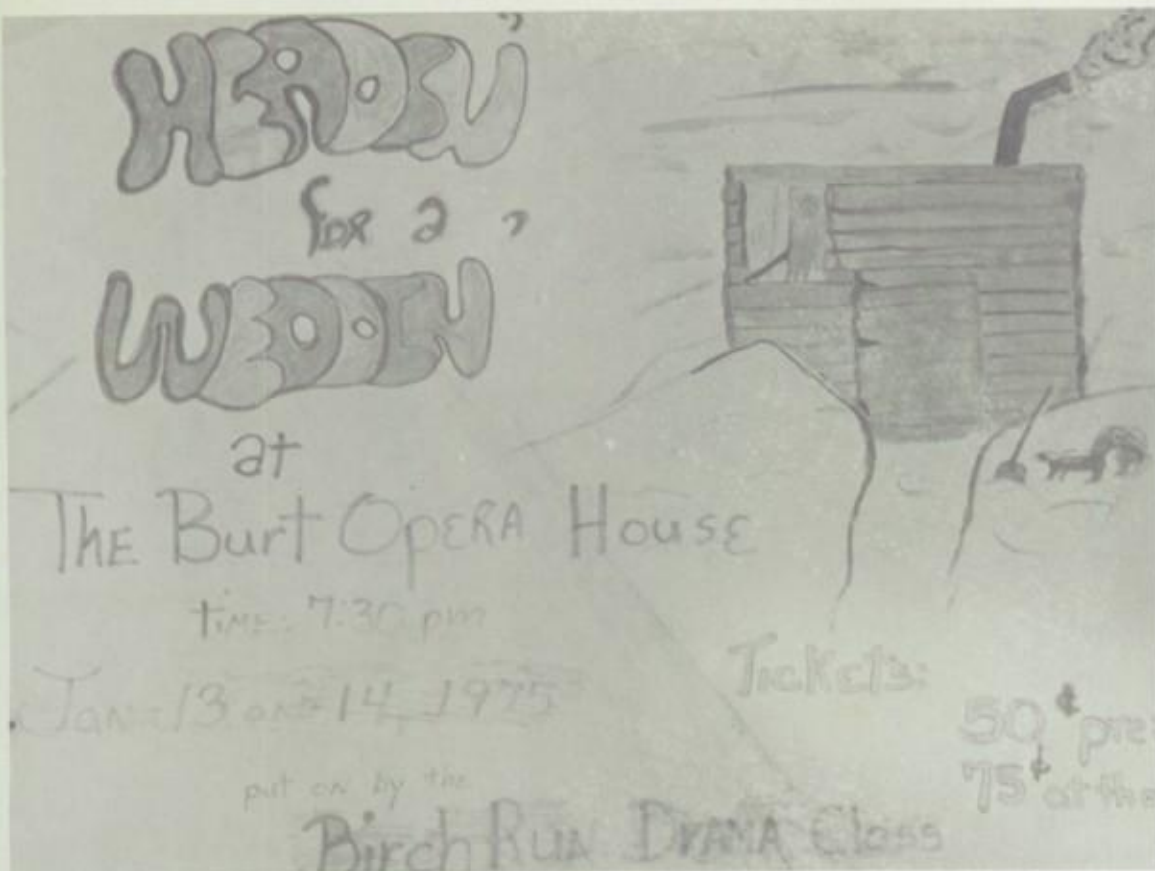 HEADEN'
for a
WEDDIN'
at
THE Burt OPERA HOUSE
time: 7:30 pm
Jan. 13 and 14, 1975
put on by the
Birch Run DRAMA Class
Tickets:
50¢ pre
75¢ at the